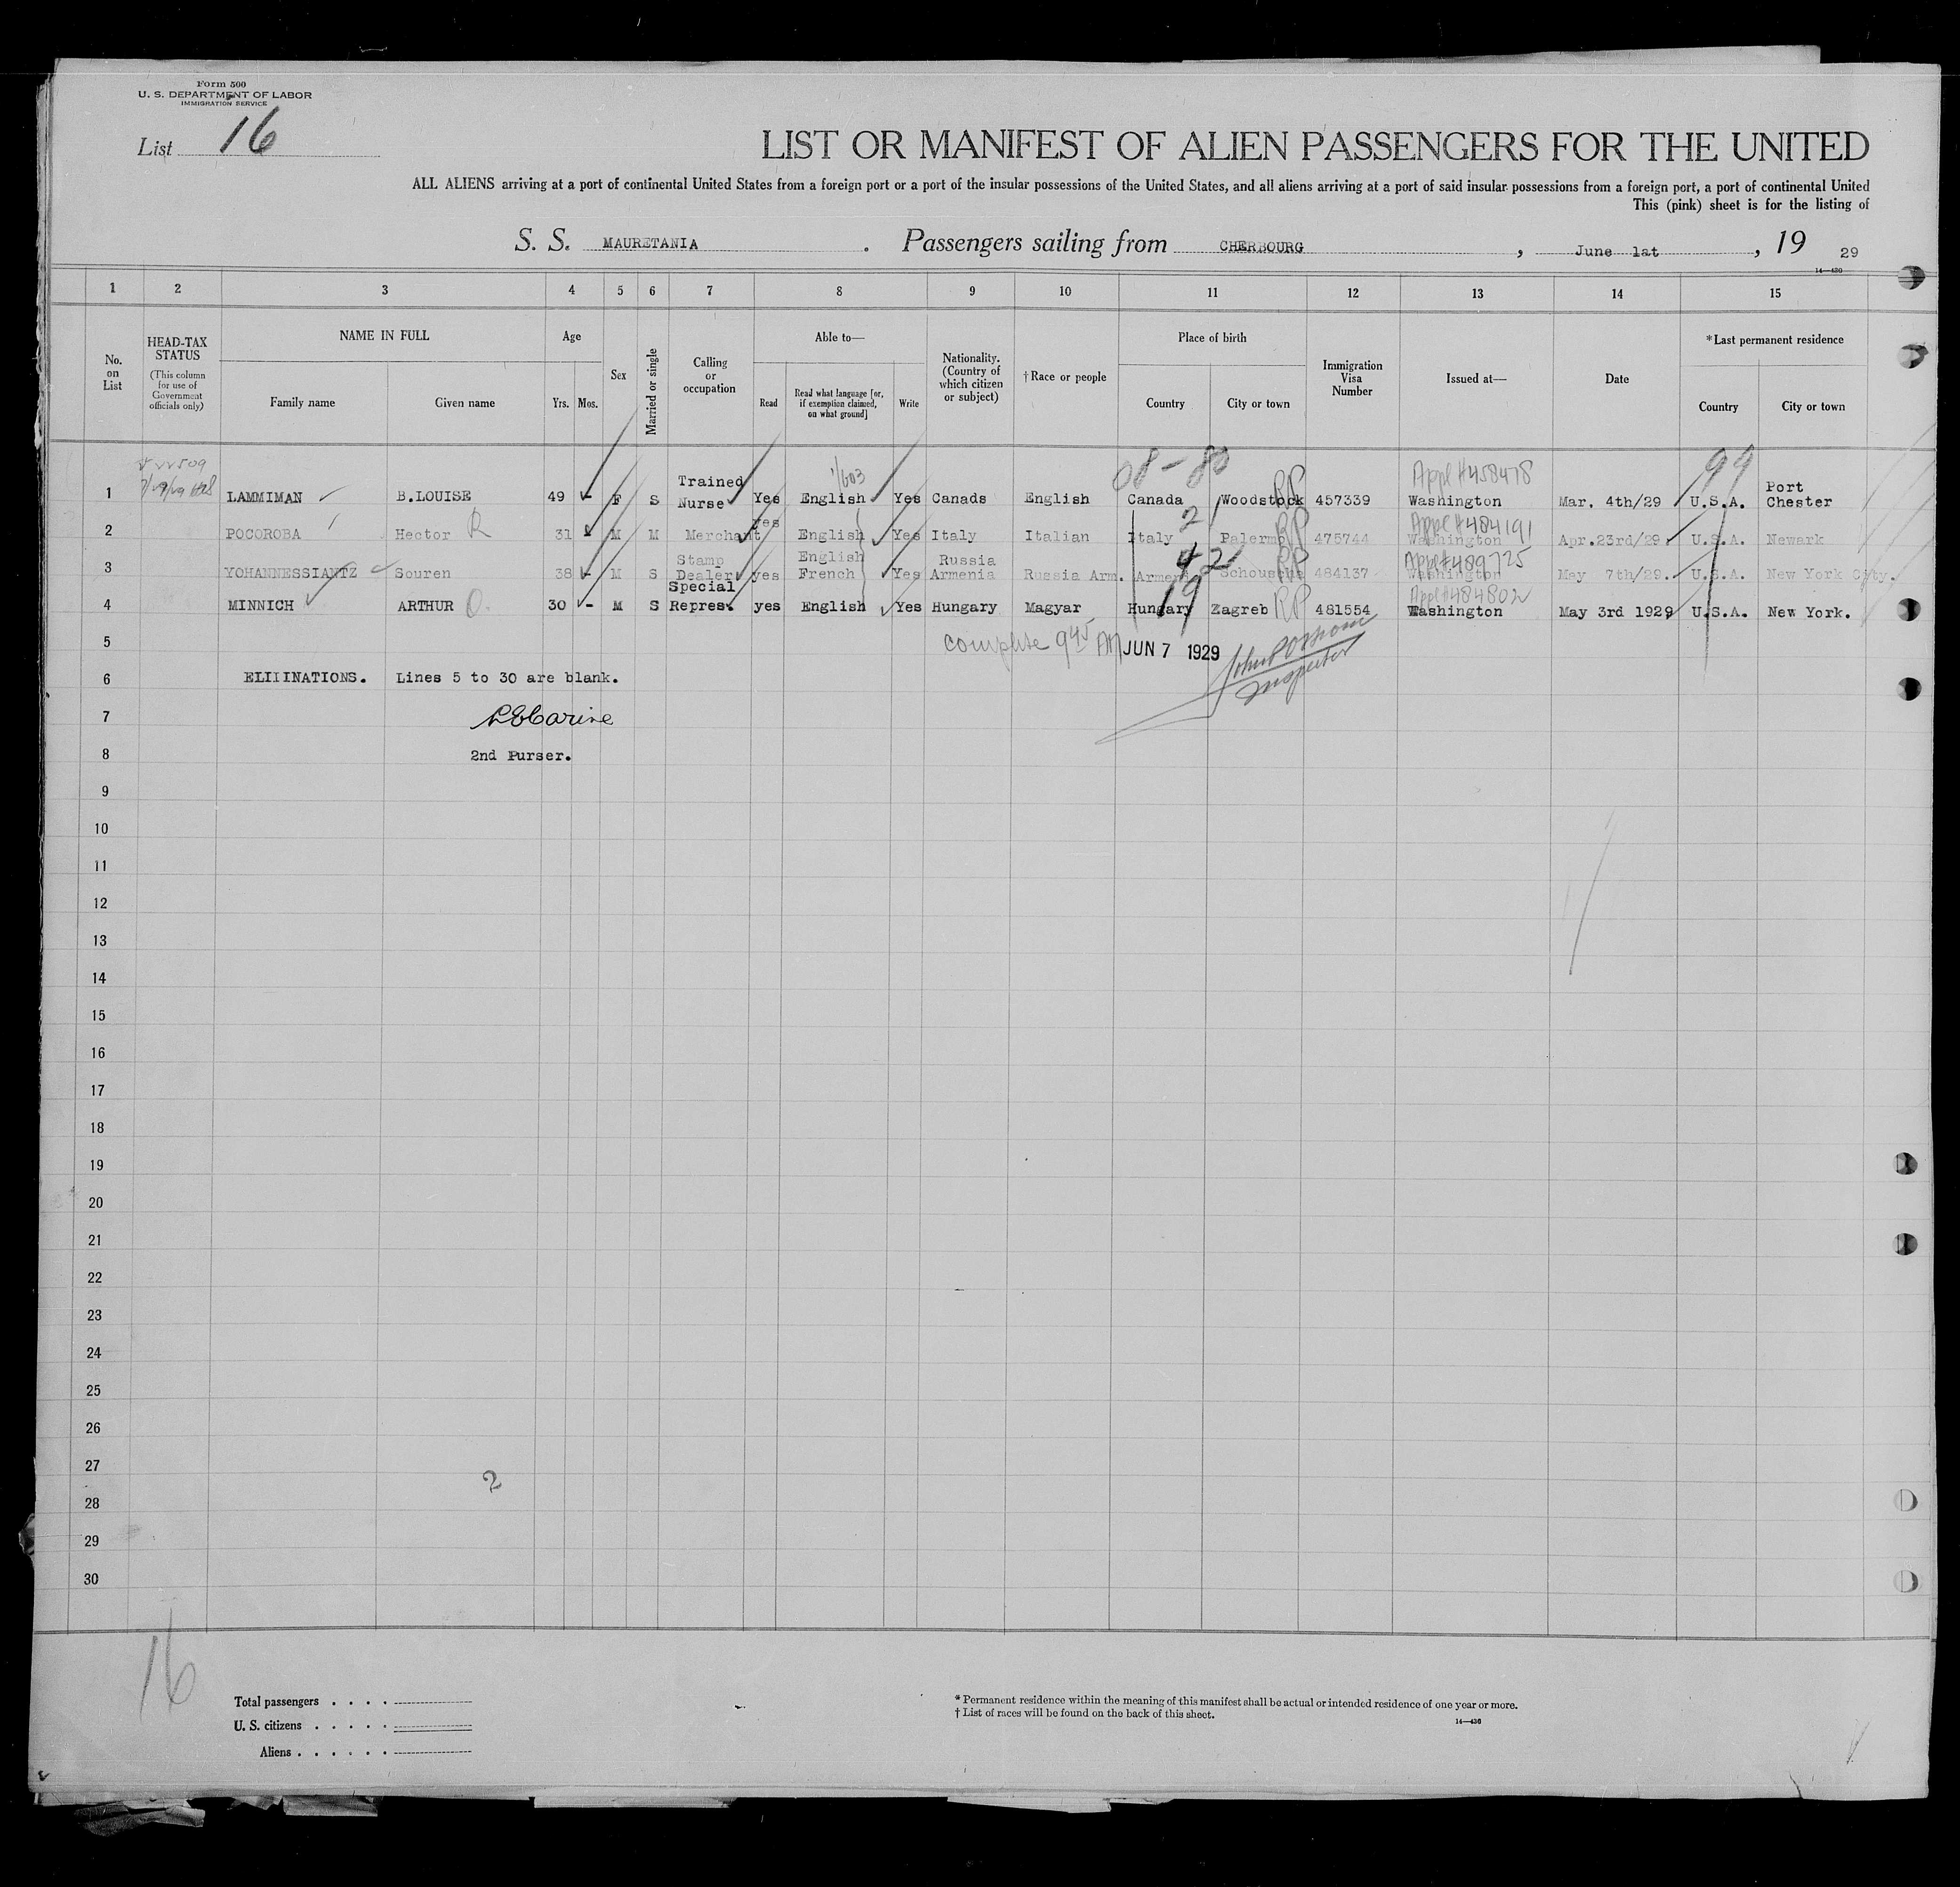 Form 500
U. S. DEPARTMENT OF LABOR
IMMIGRATION SERVICE
List 16
LIST OR MANIFEST OF ALIEN PASSENGERS FOR THE UNITED
ALL ALIENS arriving at a port of continental United States from a foreign port or a port of the insular possessions of the United States, and all aliens arriving at a port of said insular possessions from a foreign port, a port of continental United
This (pink) sheet is for the listing of
S. S. MAURETANIA . Passengers sailing from CHERBOURG , June 1st , 19 29
14—430
1 2 3 4 5 6 7 8 9 10 11 12 13 14 15
No. on List
HEAD-TAX STATUS
(This column for use of Government officials only)
NAME IN FULL
Family name
Given name
Age
Yrs.
Mos.
Sex
Married or single
Calling or occupation
Able to—
Read
Read what language [or, if exemption claimed, on what ground]
Write
Nationality. (Country of which citizen or subject)
†Race or people
Place of birth
Country
City or town
Immigration Visa Number
Issued at—
Date
*Last permanent residence
Country
City or town
08-80
1/603
Appl #458478
99
1 LAMMIMAN B.LOUISE 49 - F S Trained Nurse Yes English Yes Canada English Canada Woodstock RP 457339 Washington Mar. 4th/29 U.S.A. Port Chester
2
Appl #484191
2 POCOROBA Hector R 31 M M Merchant yes English Yes Italy Italian Italy Palermo RP 475744 Washington Apr.23rd/29. U.S.A. Newark
42
Appl #489725
3 YOHANNESSIANTZ Souren 38 - M S Stamp Dealer yes English French Yes Russia Armenia Russia Arm. Armenia RP 484137 Washington May 7th/29. U.S.A. New York City.
19
Appl #484802
4 MINNICH ARTHUR O. 30 - M S Special Repres. yes English Yes Hungary Magyar Hungary Zagreb RP 481554 Washington May 3rd 1929 U.S.A. New York.
5 complete 9 45 AM JUN 7 1929
Inspector
6 ELIIINATIONS. Lines 5 to 30 are blank.
7
8 2nd Purser.
9
10
11
12
13
14
15
16
17
18
19
20
21
22
23
24
25
26
27
2
28
29
30
16
Total passengers . . . .
U. S. citizens . . . . .
Aliens . . . . . .
* Permanent residence within the meaning of this manifest shall be actual or intended residence of one year or more.
† List of races will be found on the back of this sheet.
14—430